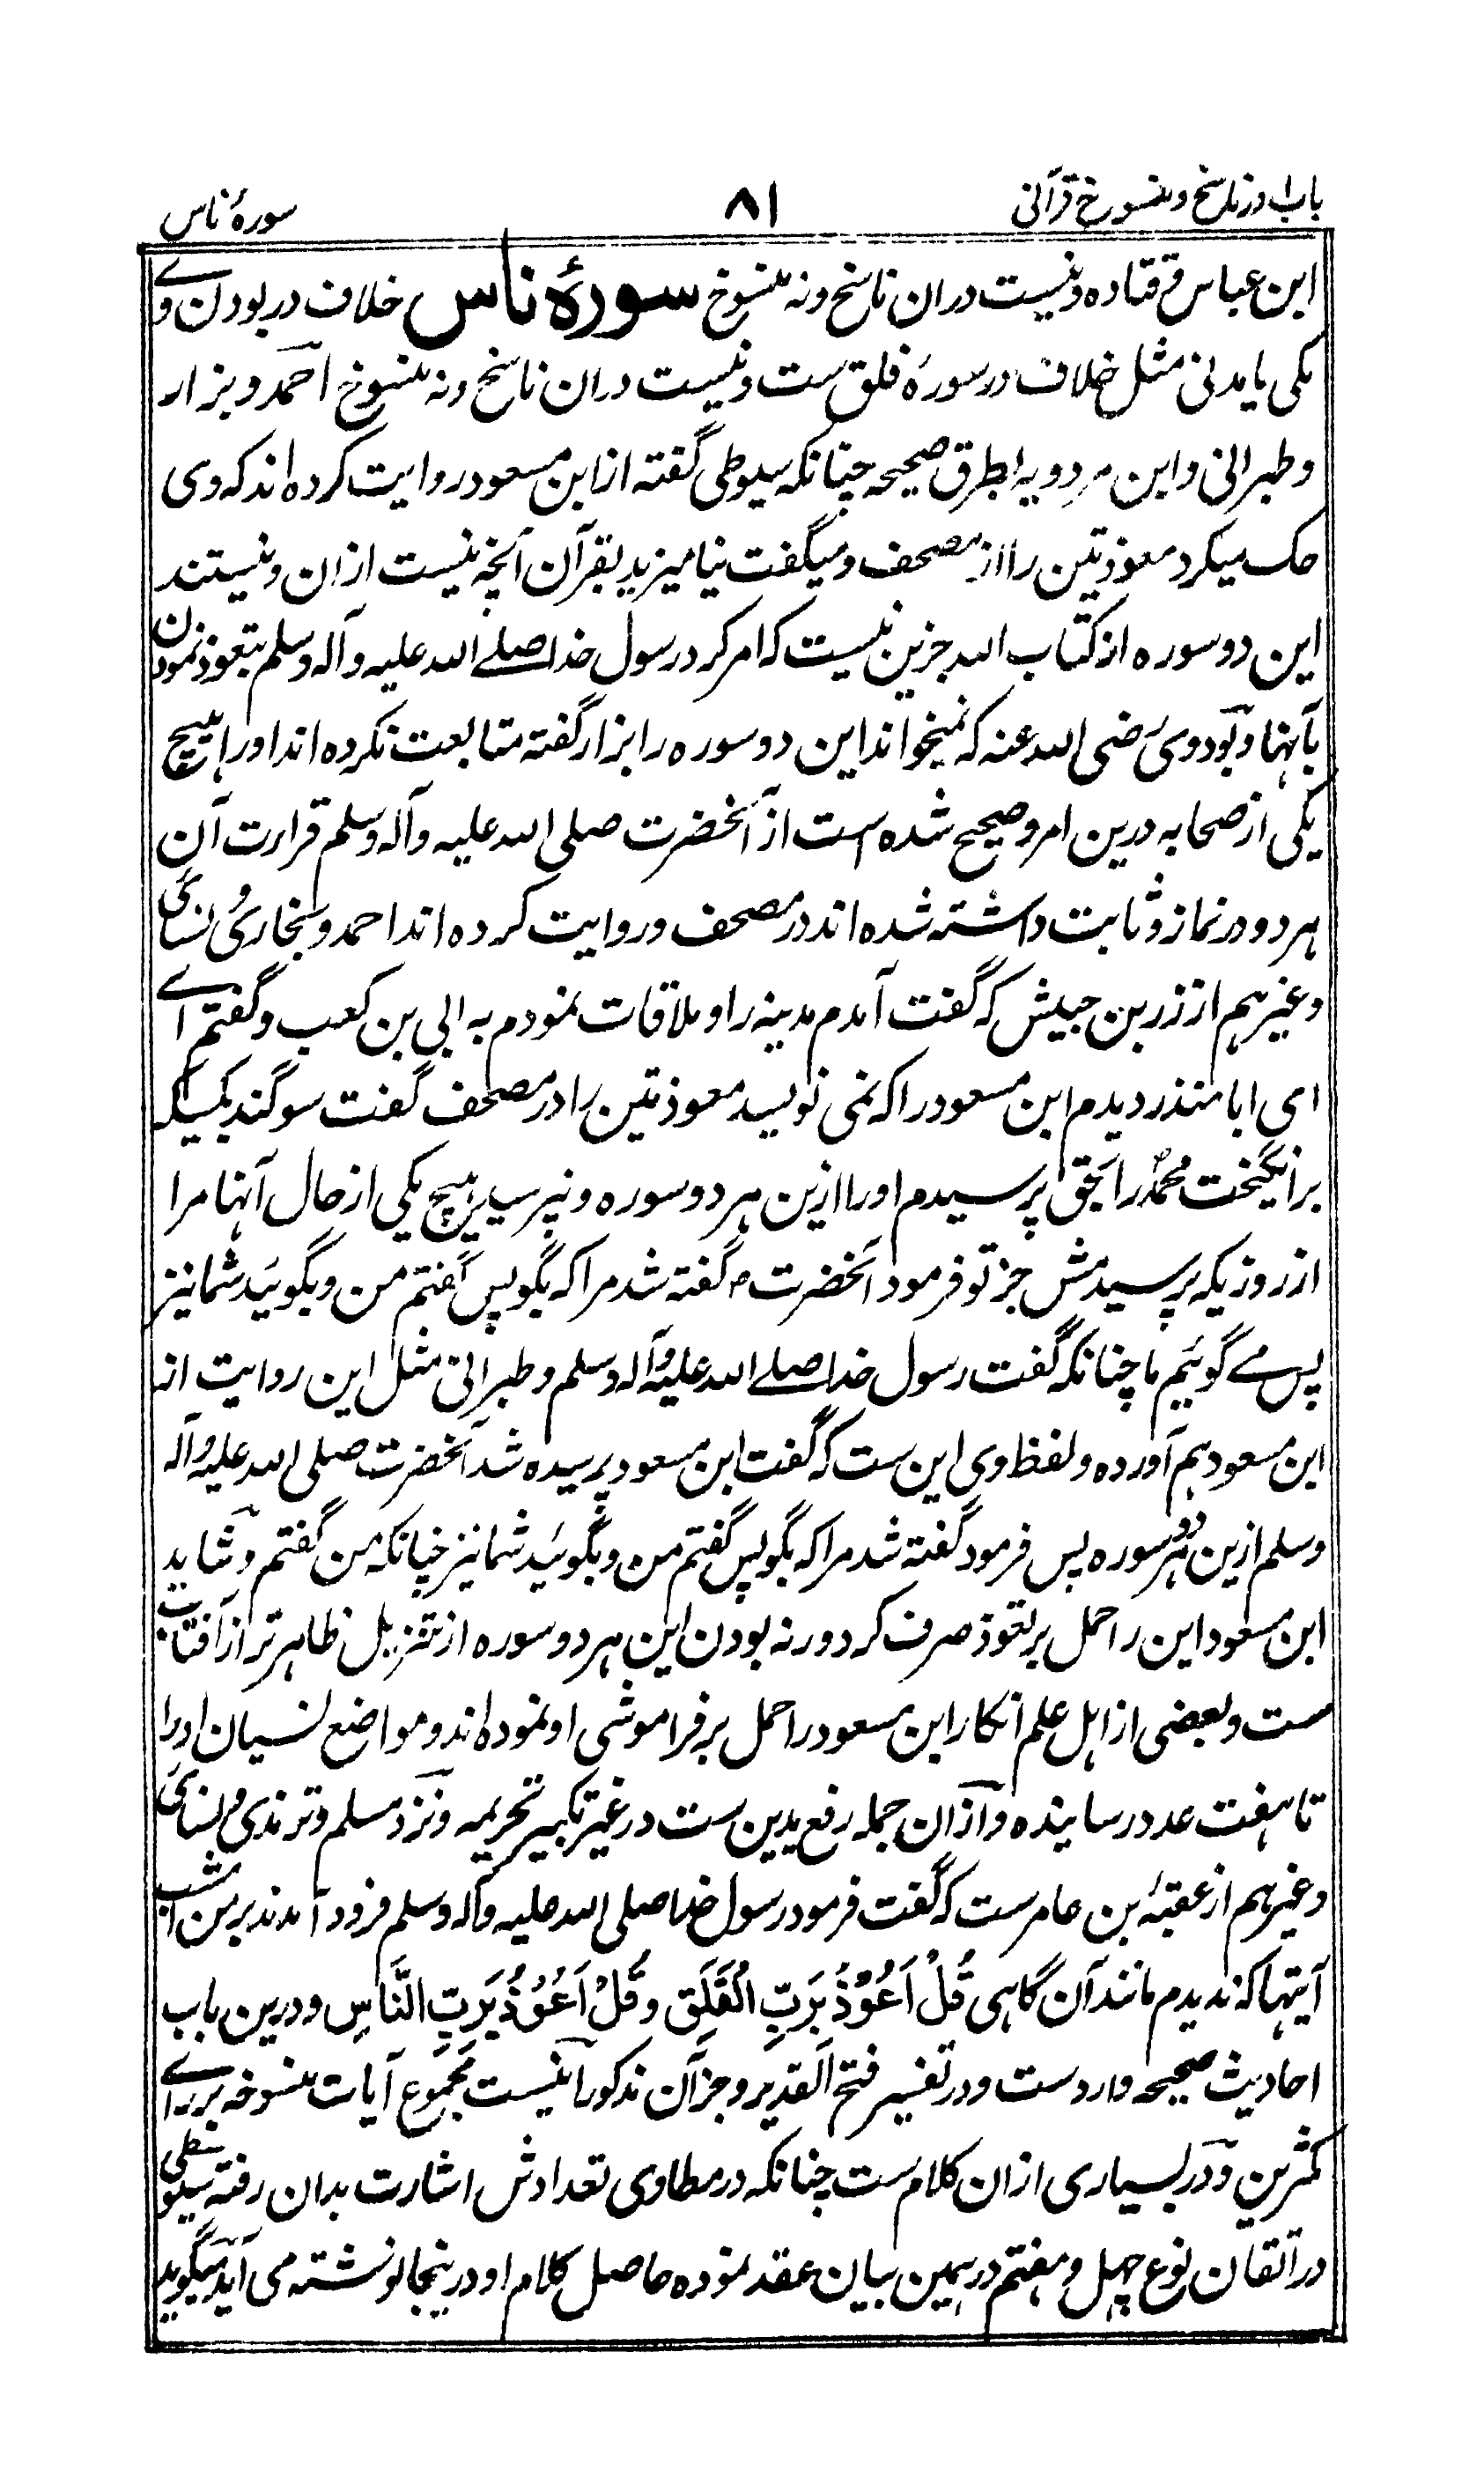 باب ا در ناسخ و منسوخ قرآنی
۸۱
سورهٔ ناس
ابن عباس و قتاده و نیست دران ناسخ و نه منسوخ سورهٔ ناس خلاف در بودن وے
مکی یا مدنی مثل خلاف در سورهٔ فلق ست و نیست دران ناسخ و نه منسوخ احمد و بزار
و طبرانی و ابن مردویه بطرق صحیحه چنانکه سیوطی گفته از ابن مسعود روایت کرده اند که وی
حک میکرد معوذتین را از مصحف و میگفت نیامیزید بقرآن آنچه نیست ازان و نیستند
این دو سوره از کتاب الله جزین نیست که امر کرد رسول خدا صلے الله علیه و آله وسلم بتعوذ نمودن
بآنها و بود وی رضی الله عنه که نمیخواند این دو سوره را بزار گفته متابعت نکرده اند او را هیچ
یکی از صحابه درین امر و صحیح شده است از آنحضرت صلی الله علیه و آله وسلم قراءت آن
هر دو در نماز و ثابت داشته شده اند در مصحف و روایت کرده اند احمد و بخاری و نسائی
و غیرهم از زر بن حبیش که گفت آمدم مدینه را و ملاقات نمودم به ابی بن کعب و گفتم اے
ای ابا منذر دیدم ابن مسعود را که نمی نویسد معوذتین را در مصحف گفت سوگند بکسیکه
برانگیخت محمدؐ را بحق پرسیدم او را ازین هر دو سوره و نپرسید هیچ یکی از حال آنها مرا
از روزیکه پرسیدمش جز تو فرمود آنحضرت ص گفته شد مرا که بگو پس گفتم من و بگوئید شما نیز
پس مے گوئیم ما چنانکه گفت رسول خدا صلے الله علیه و آله وسلم و طبرانی مثل این روایت از
ابن مسعود هم آورده و لفظ وی این ست که گفت ابن مسعود پرسیده شد آنحضرت صلی الله علیه و آله
وسلم ازین هر دو سوره پس فرمود گفته شد مرا که بگو پس گفتم من و بگوئید شما نیز چنانکه من گفتم و شاید
ابن مسعود این را حمل بر تعوذ صرف کرد ورنه بودن این هر دو سوره از تنزیل ظاهر تر از آفتاب
ست و بعضی از اهل علم انکار ابن مسعود را حمل بر فراموشی او نموده اند و مواضع نسیان او را
تا هفت عدد رسانیده و ازان جمله رفع یدین ست در غیر تکبیر تحریمه و نزد مسلم و ترمذی و نسائی
و غیرهم از عقبهٔ بن عامر ست که گفت فرمود رسول خدا صلی الله علیه و آله وسلم فرود آمدند بر من امشب
آیتها که ندیدم مانند آن گاهی قُلْ اَعُوْذُ بِرَبِّ الْفَلَقِ و قُلْ اَعُوْذُ بِرَبِّ النَّاسِ و درین باب
احادیث صحیحه وارد ست و در تفسیر فتح القدیر و جز آن مذکور اینست مجموع آیات منسوخه بر راے
مکثرین و در بسیاری ازان کلام ست چنانکه در مطاوی تعدادش اشارت بدان رفته سیوطی
در اتقان نوع چهل و هفتم در همین بیان عقد نموده حاصل کلام او درینجا نوشته می آید میگوید